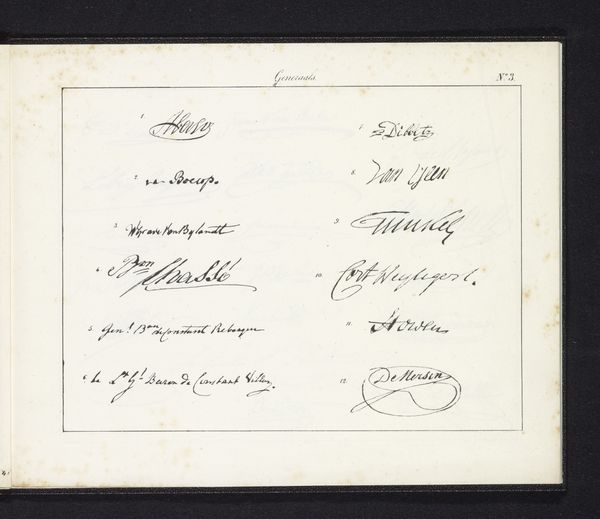 Generaals.
N° 3.
1.
2. van Boecop.
3. W^m grave Van Bylandt
4. B^on Chassé
5. Gen^l B^on de Constant Rebecque
6. Le L^t G^l Baron de Constant Villars.
7. Dibetz
8. Van Geen
9.
10. Cort Heyligers.
11. Howen
12. De Kersin